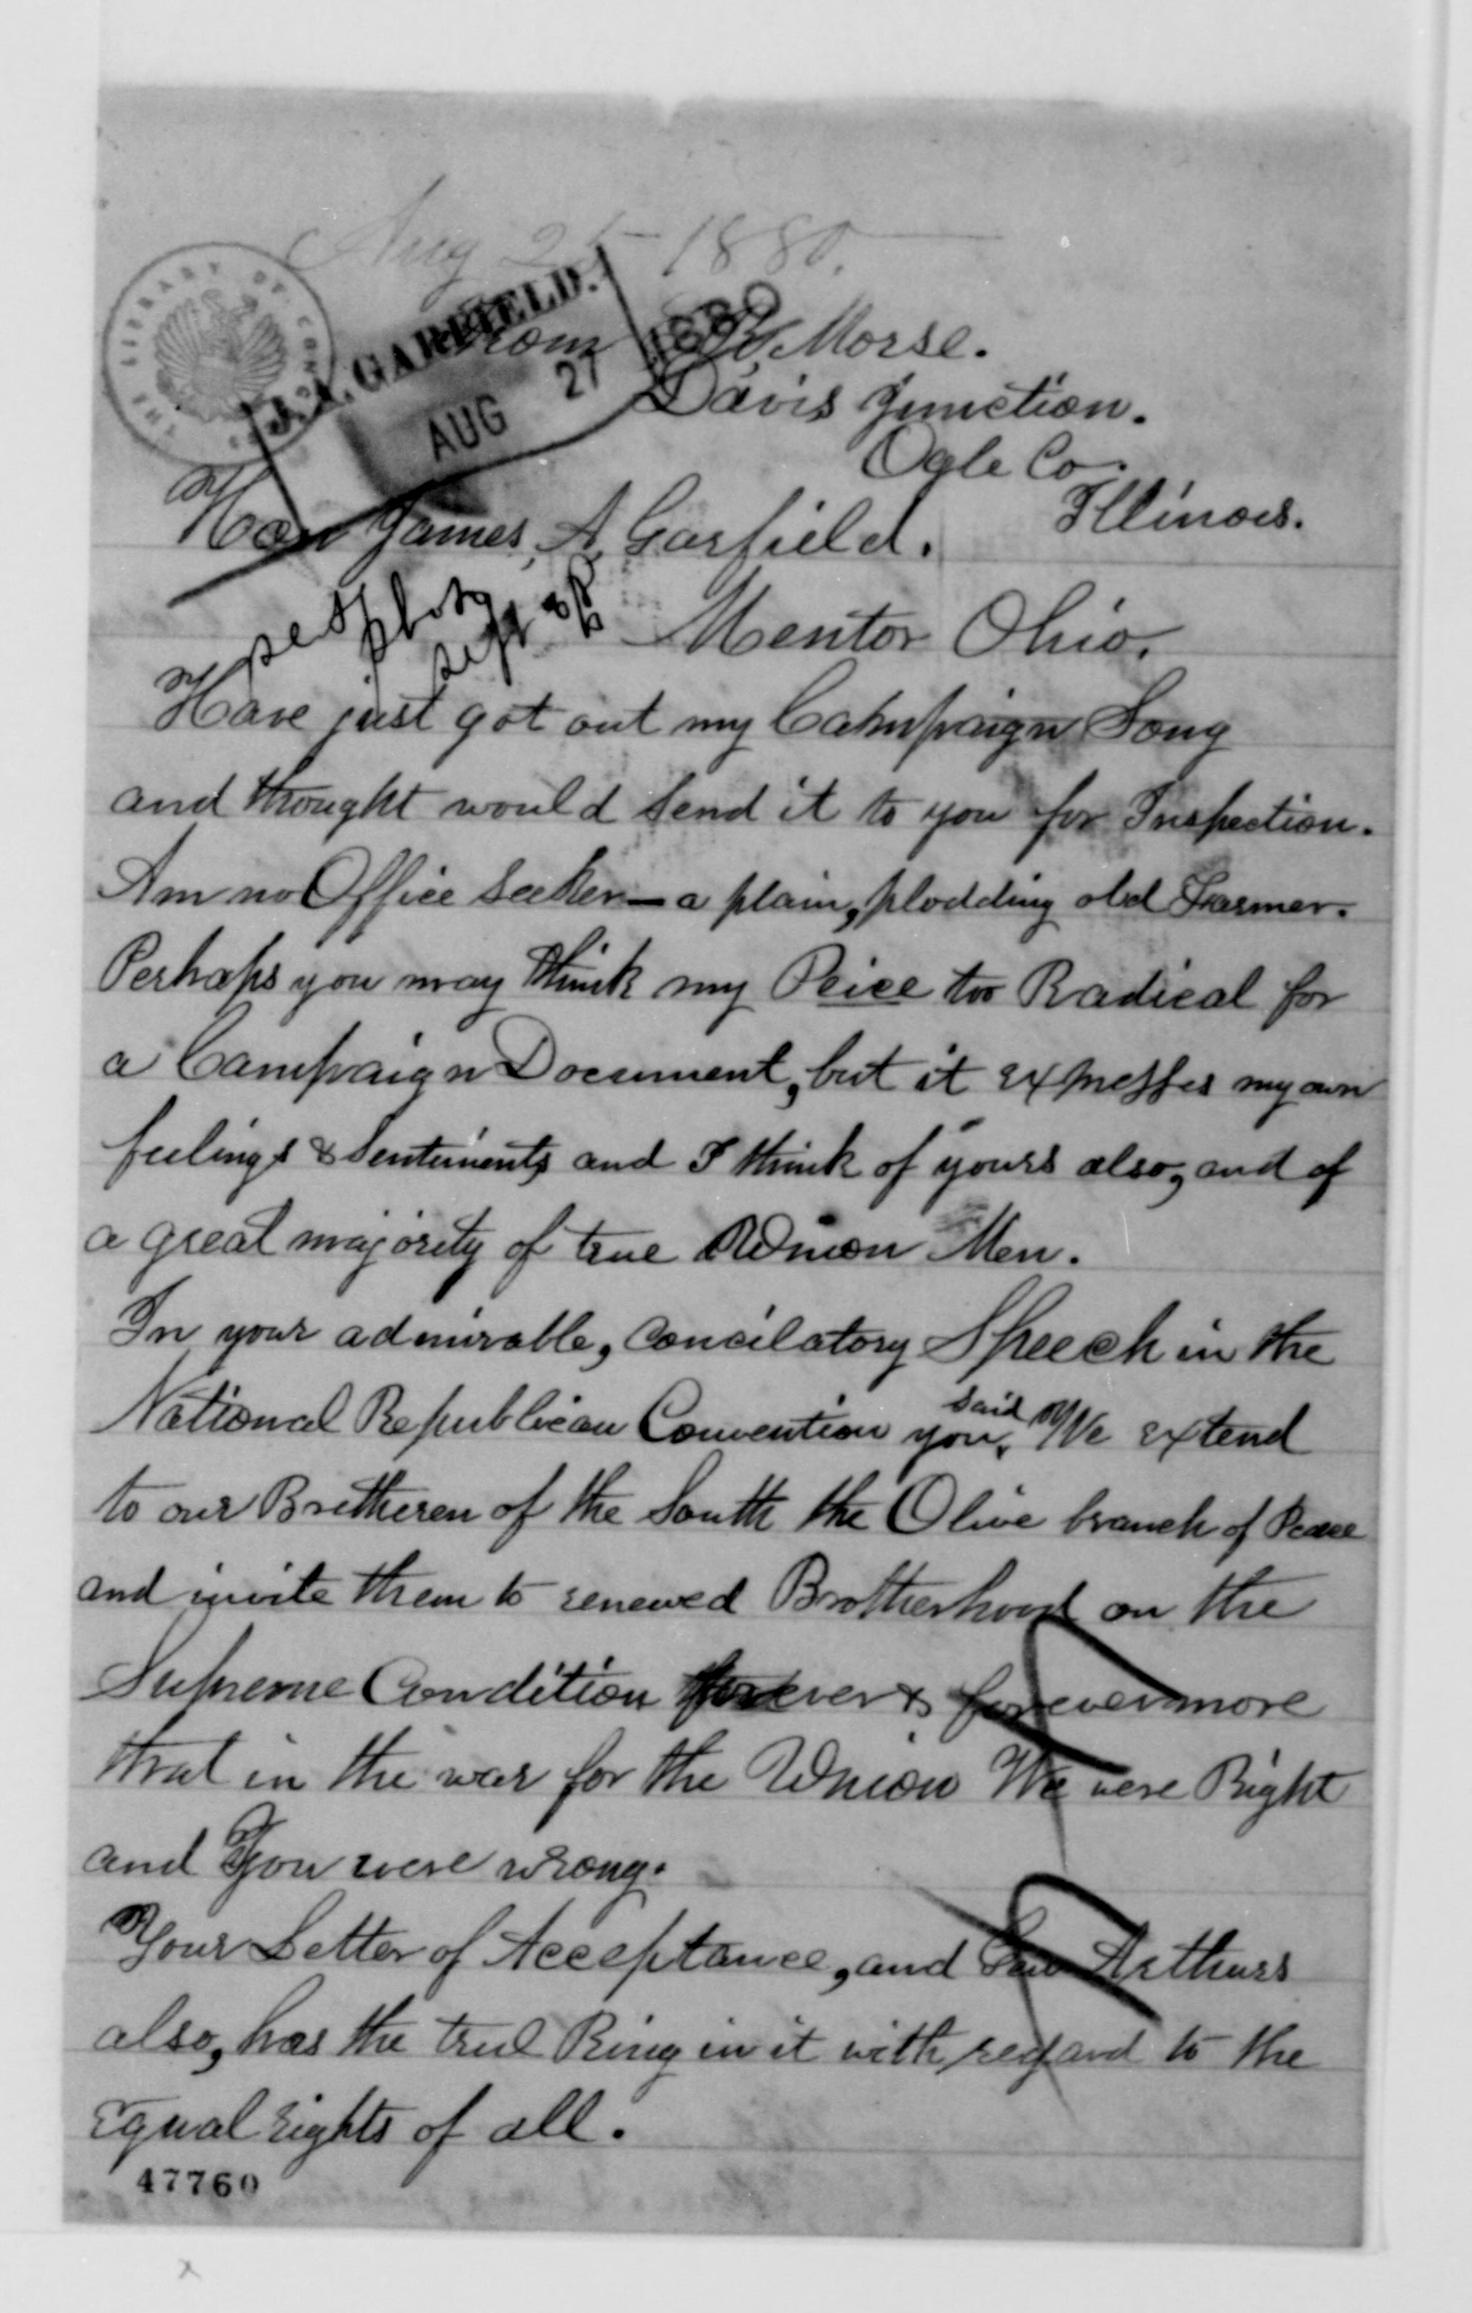 Aug 25 1880.
THE LIBRARY OF CONGRESS
J. A. GARFIELD.
AUG 27 1880
From B. Morse.
Davis Junction.
Ogle Co.
Illinois.
Hon James, A Garfield.
Sept
Mentor Ohio.
Have just got out my Campaign Song
and thought would send it to you for Inspection.
Am no Office Seeker — a plain, plodding old Farmer.
Perhaps you may think my Peice too Radical for
a Campaign Document, but it expresses my own
feelings & Sentiments and I think of yours also, and of
a great majority of true Union Men.
In your admirable, concilatory Speech in the
National Republican Convention you said We extend
to our Bretheren of the South the Olive branch of Peace
and invite them to renewed Brotherhood on the
Supreme Condition forever & forevermore
that in the war for the Union We were Right
and You were wrong.
Your Letter of Acceptance, and Gen Arthurs
also, has the true Ring in it with regard to the
Equal rights of all.
47760